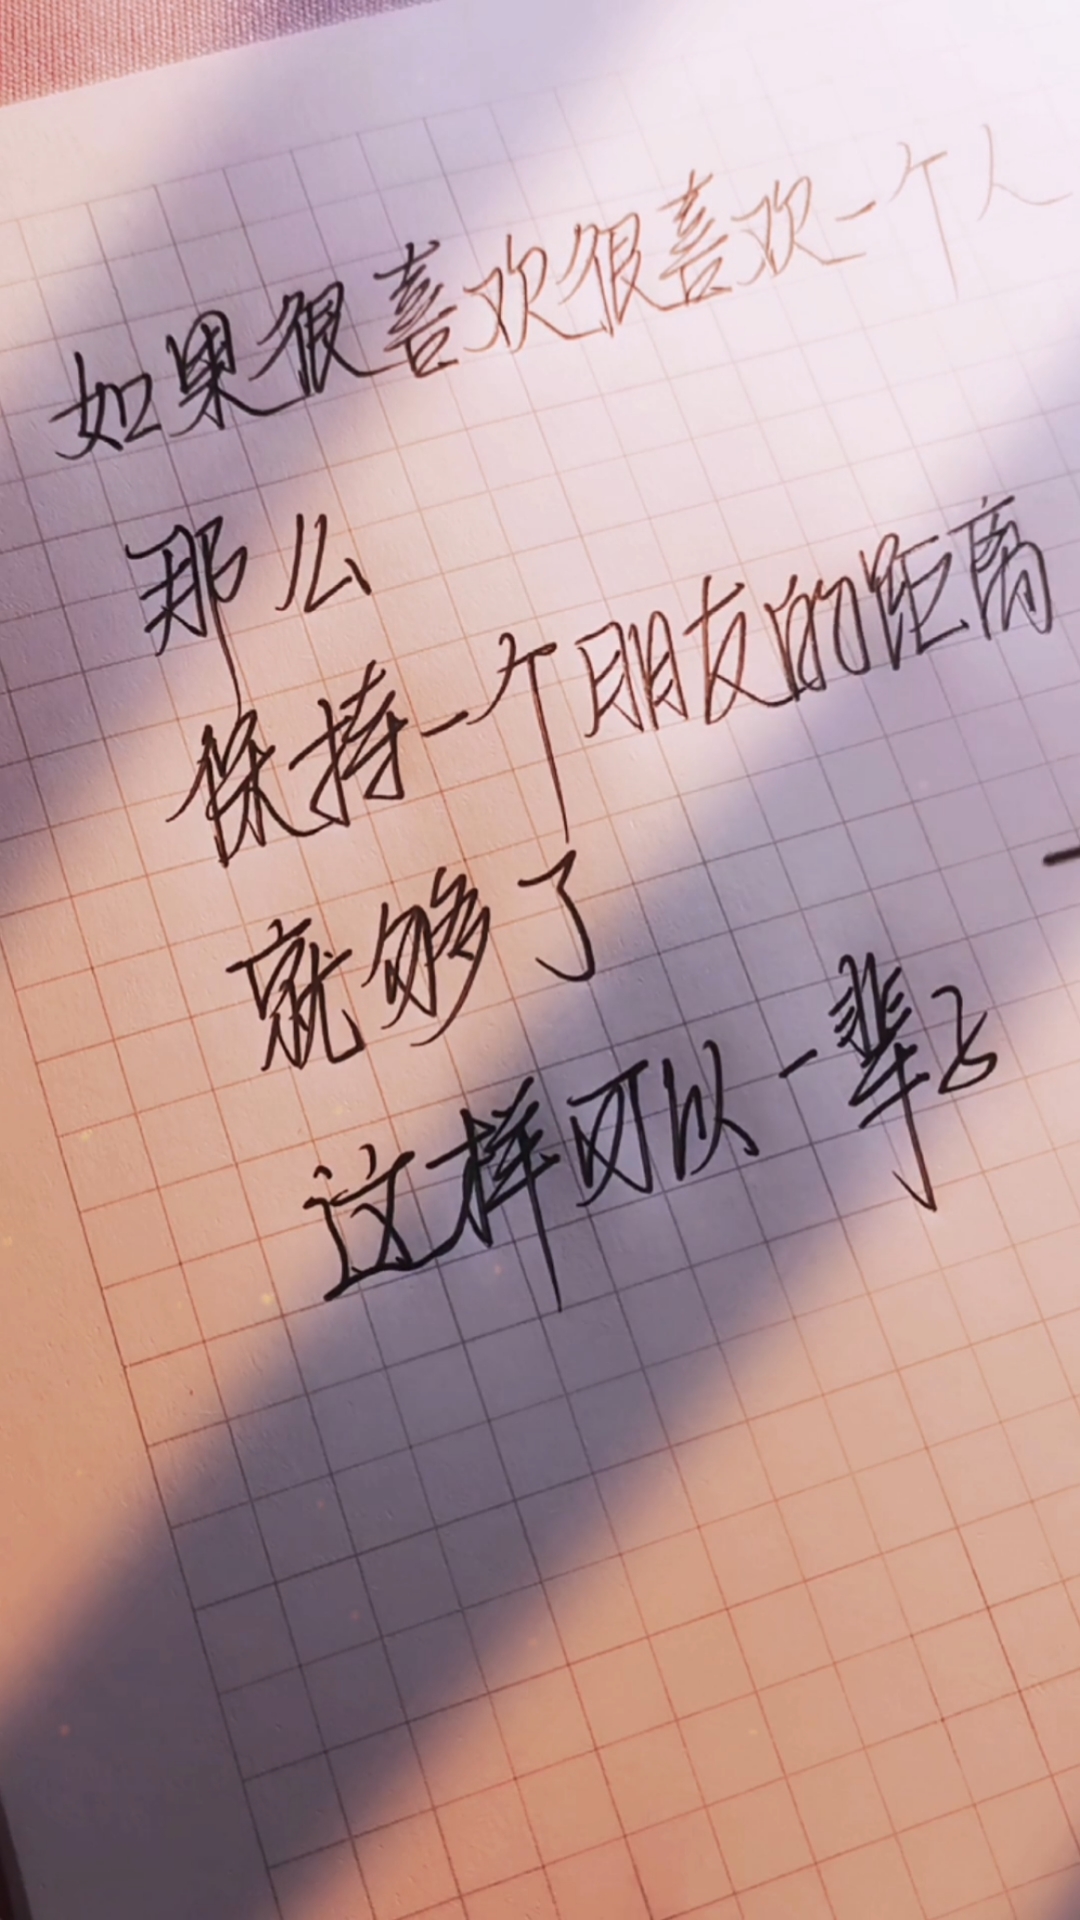 如果很喜欢很喜欢一个人
那么
保持一个朋友的距离
就够了
这样可以一辈子